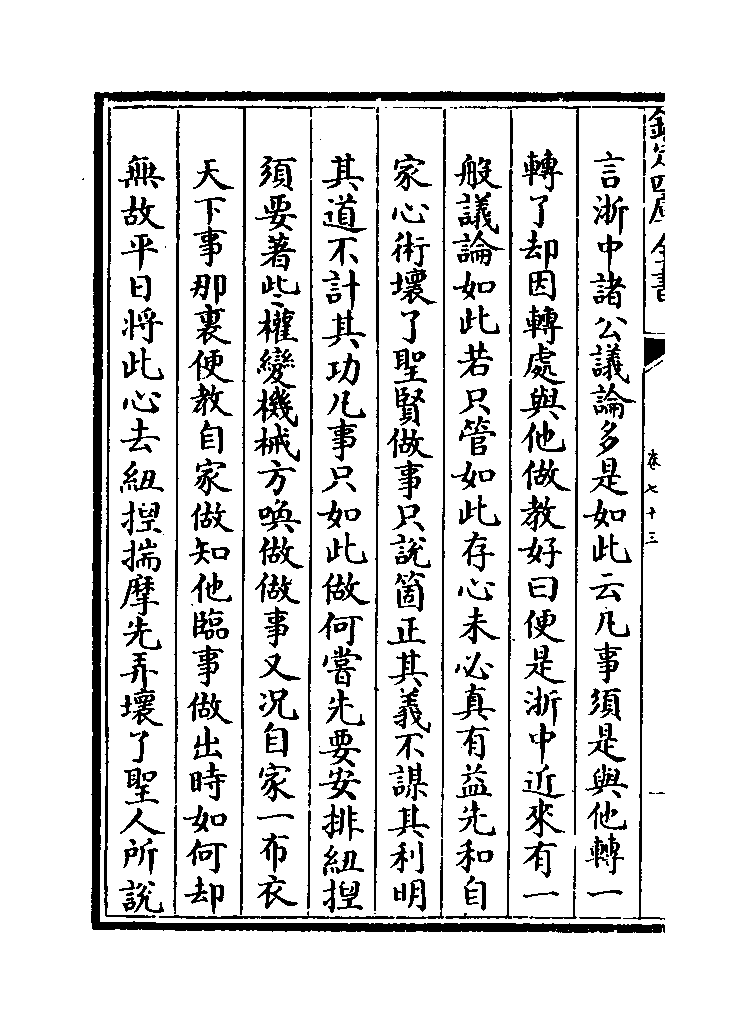 欽定四庫全書
卷七十三
一
言浙中諸公議論多是如此云凡事須是與他轉一
轉了却因轉處與他做教好曰便是浙中近來有一
般議論如此若只管如此存心未必真有益先和自
家心術壞了聖賢做事只說箇正其義不謀其利明
其道不計其功凡事只如此做何嘗先要安排紐捏
須要著些權變機械方喚做做事又况自家一布衣
天下事那裏便教自家做知他臨事做出時如何却
無故平日將此心去紐捏揣摩先弄壞了聖人所說